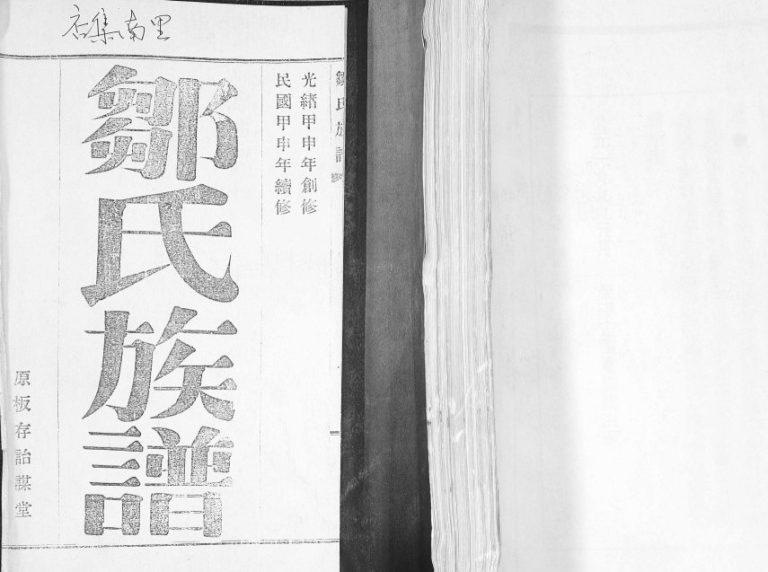 鄒氏族譜
光緒甲申年創修
民國甲申年續修
鄒氏族譜
原板存詒謀堂